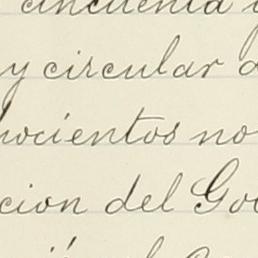 cincuenta
y circular
nocientos no
cion del Go